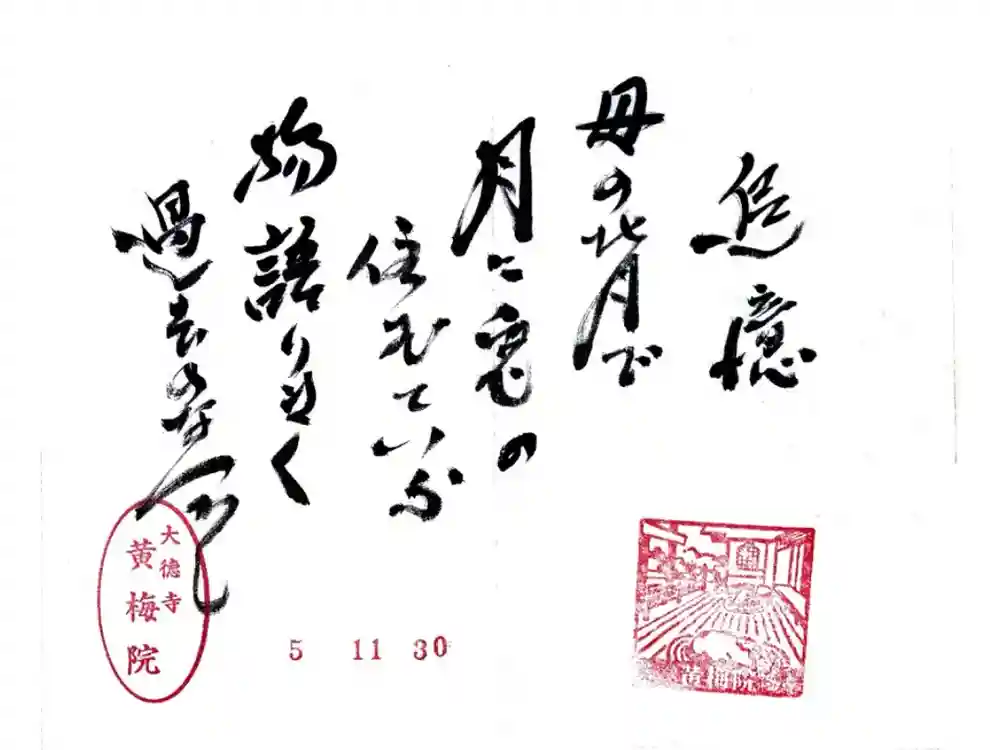 追憶
母の背で
月に兎の
住むていふ
物語りきく
過去のなつかし
大徳寺
黄梅院
5 11 30
黄梅院